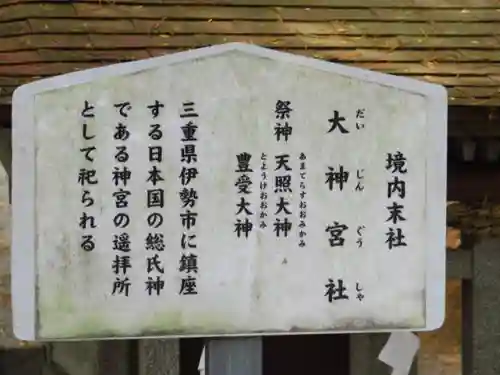 境内末社
大神宮社
だいじんぐうしゃ
祭神 天照大神
あまてらすおおみかみ
豊受大神
とようけおおかみ
三重県伊勢市に鎮座
する日本国の総氏神
である神宮の遥拝所
として祀られる